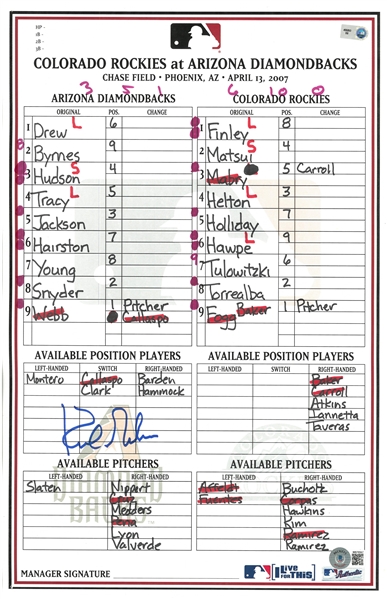 COLORADO ROCKIES at ARIZONA DIAMONDBACKS
CHASE FIELD • PHOENIX, AZ • APRIL 13, 2007
3 5 1 6 10 0
ARIZONA DIAMONDBACKS COLORADO ROCKIES
ORIGINAL POS. CHANGE ORIGINAL POS. CHANGE
1 Drew L 6 1 Finley L 8
2 Byrnes 9 2 Matsui S 4
3 Hudson S 4 3 Mabry 5 Carroll
4 Tracy L 5 4 Helton L 3
5 Jackson 3 5 Holliday 7
6 Hairston 7 6 Hawpe L 9
7 Young 8 7 Tulowitzki 6
8 Snyder 2 8 Torrealba 2
9 Webb 1 Pitcher Callaspo 9 Fogg Baker 1 Pitcher
AVAILABLE POSITION PLAYERS AVAILABLE POSITION PLAYERS
LEFT-HANDED SWITCH RIGHT-HANDED LEFT-HANDED SWITCH RIGHT-HANDED
Montero Callaspo Barden Baker
Clark Hammock Carroll
Atkins
Iannetta
Taveras
AVAILABLE PITCHERS AVAILABLE PITCHERS
LEFT-HANDED RIGHT-HANDED LEFT-HANDED RIGHT-HANDED
Slaten Nippert Affeldt Bucholz
Cruz Fuentes Corpas
Medders Hawkins
Pena Kim
Lyon Ramirez
Valverde Ramirez
MANAGER SIGNATURE I Live FOR THIS! Authentic